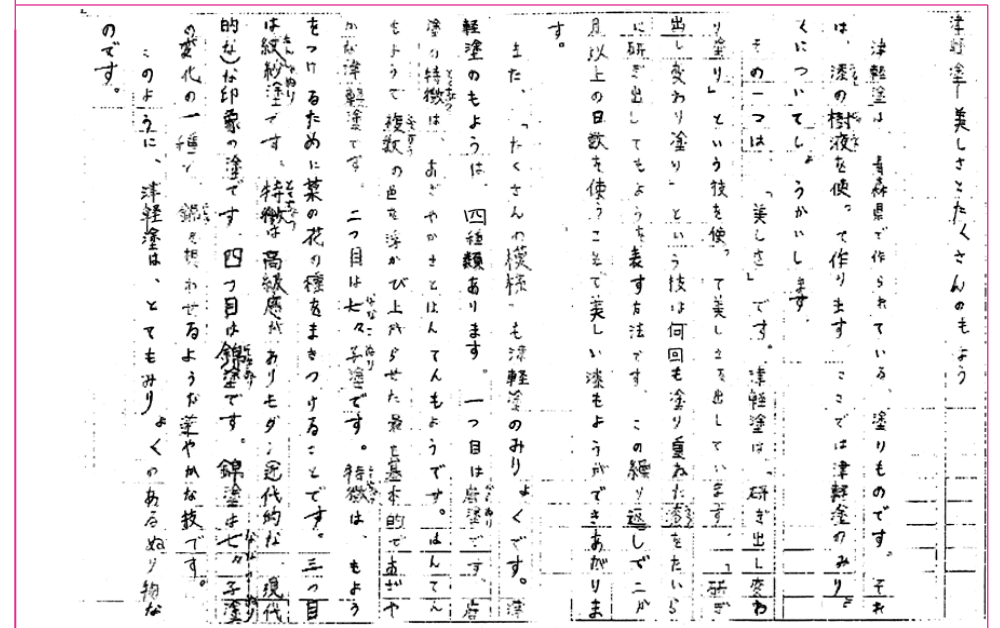 津軽塗ー美しさとたくさんのもよう
津軽塗は、青森県で作られている、塗りものです。それ
は、漆の樹液を使って作ります。ここでは津軽塗のみりょ
くについてしょうかいします。
その一つは、「美しさ」です。津軽塗は「研ぎ出し変わ
り塗り」という技を使って美しさを出しています。「研ぎ
出し変わり塗り」という技は何回も塗り重ねた漆をたいら
に研ぎ出してもようを表す方法です。この繰り返しで二か
月以上の日数を使うことで美しい漆もようができあがりま
す。
また、「たくさんの模様」も津軽塗のみりょくです。津
軽塗のもようは、四種類あります。一つ目は唐塗です。唐
塗の特徴は、あざやかさとはんてんもようです。はんてん
もようで複数の色を浮かび上がらせた最も基本的であざや
かな津軽塗です。二つ目は七々子塗です。特徴は、もよう
をつけるために菜の花の種をまきつけることです。三つ目
は紋紗塗です。特徴は高級感がありモダン(近代的な 現代
的な)な印象の塗です。四つ目は錦塗です。錦塗は七々子塗
の変化の一種で、錦を想わせるような華やかな技です。
このように、津軽塗は、とてもみりょくのあるぬり物な
のです。